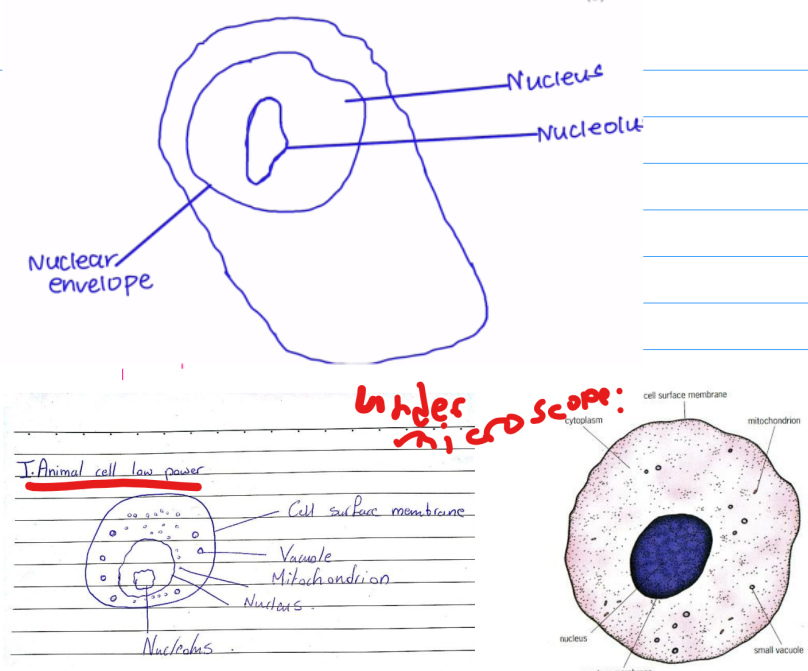 Nucleus
Nucleolu
Nuclear
envelope
Under
microscope:
I. Animal cell low power
Cell surface membrane
Vacuole
Mitochondrion
Nucleus.
Nucleolus.
cell surface membrane
cytoplasm
mitochondrion
nucleus
small vacuole